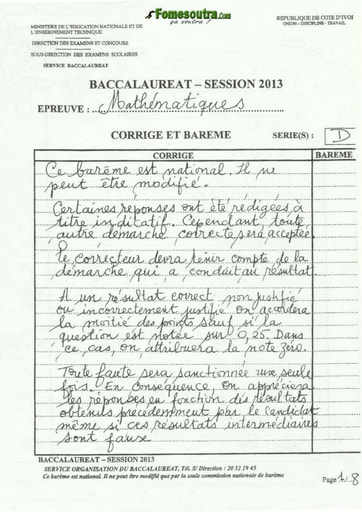 Fomesoutra.com
ça soutra !
MINISTERE DE L'EDUCATION NATIONALE ET DE
L'ENSEIGNEMENT TECHNIQUE
REPUBLIQUE DE COTE D'IVOI
UNION – DISCIPLINE - TRAVAIL
DIRECTION DES EXAMENS ET CONCOURS
SOUS-DIRECTION DES EXAMENS SCOLAIRES
SERVICE BACCALAUREAT
BACCALAUREAT – SESSION 2013
EPREUVE : Mathématiques
CORRIGE ET BAREME SERIE(S) : D
CORRIGE BAREME
Ce barème est national. Il ne
peut être modifié.
Certaines réponses ont été rédigées à
titre indicatif. Cependant, toute
autre démarche correcte sera acceptée
Le correcteur devra tenir compte de la
démarche qui a conduit au résultat.
A un résultat correct non justifié
ou incorrectement justifié on accordera
la moitié des points sauf si la
question est notée sur 0,25. Dans
ce cas, on attribuera la note zéro.
Toute faute sera sanctionnée une seule
fois. En conséquence, on appréciera
les réponses en fonction des résultats
obtenus précédemment par le candidat
même si ces résultats intermédiaires
sont faux
BACCALAUREAT – SESSION 2013
SERVICE ORGANISATION DU BACCALAUREAT, Tél. S/ Direction : 20 32 19 45
Ce barème est national. Il ne peut être modifié que par la seule commission nationale de barème
Page 1/8